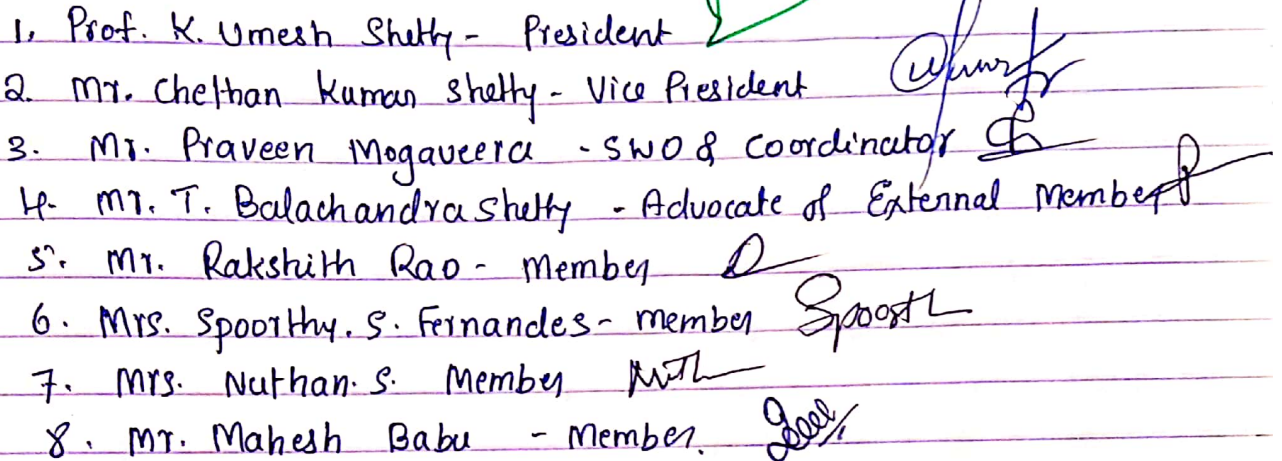 1. Prof. K. Umesh Shetty - President
2. Mr. Chethan Kumar Shetty - Vice President
3. Mr. Praveen Mogaveera - SWO & Coordinator
4. Mr. T. Balachandra Shetty - Advocate of External Member
5. Mr. Rakshith Rao - Member
6. Mrs. Spoorthy. S. Fernandes - member Spoorth
7. Mrs. Nuthan. S. Member
8. Mr. Mahesh Babu - Member.